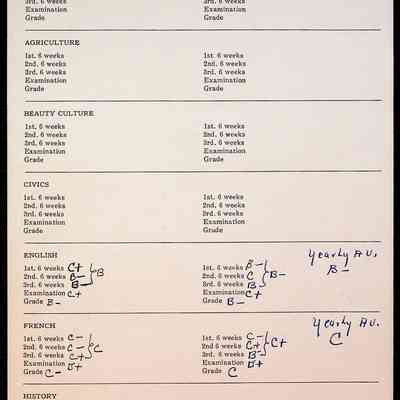 3rd. 6 weeks 3rd. 6 weeks
Examination Examination
Grade Grade
AGRICULTURE
1st. 6 weeks 1st. 6 weeks
2nd. 6 weeks 2nd. 6 weeks
3rd. 6 weeks 3rd. 6 weeks
Examination Examination
Grade Grade
BEAUTY CULTURE
1st. 6 weeks 1st. 6 weeks
2nd. 6 weeks 2nd. 6 weeks
3rd. 6 weeks 3rd. 6 weeks
Examination Examination
Grade Grade
CIVICS
1st. 6 weeks 1st. 6 weeks
2nd. 6 weeks 2nd. 6 weeks
3rd. 6 weeks 3rd. 6 weeks
Examination Examination
Grade Grade
ENGLISH Yearly Av.
1st. 6 weeks C+ 1st. 6 weeks B- B-
2nd. 6 weeks B- B 2nd. 6 weeks C B-
3rd. 6 weeks B- 3rd. 6 weeks B
Examination C+ Examination C+
Grade B- Grade B-
FRENCH Yearly Av.
1st. 6 weeks C- 1st. 6 weeks C- C
2nd. 6 weeks C- C 2nd. 6 weeks C+ C+
3rd. 6 weeks C+ 3rd. 6 weeks B-
Examination D+ Examination D+
Grade C- Grade C
HISTORY